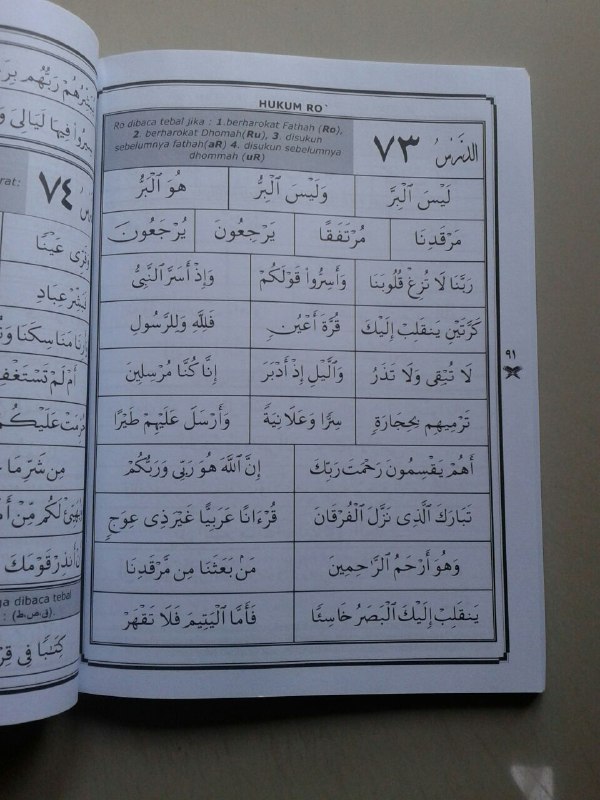 HUKUM RO`
الدَّرْسُ ٧٣
Ro dibaca tebal jika : 1.berharokat Fathah (Ro),
2. berharokat Dhomah(Ru), 3. disukun
sebelumnya fathah(aR) 4. disukun sebelumnya
dhommah (uR)
لَيْسَ الْبِرَّ وَلَيْسَ الْبِرُّ هُوَ الْبَرُّ
مَرْقَدِنَا مُرْتَفَقًا يَرْجِعُونَ يُرْجَعُونَ
رَبَّنَا لَا تُزِغْ قُلُوبَنَا وَأَسِرُّوا قَوْلَكُمْ وَإِذْ أَسَرَّ النَّبِيُّ
كَرَّتَيْنِ يَنقَلِبْ إِلَيْكَ قُرَّةَ أَعْيُنٍ فَلِلَّهِ وَلِلرَّسُولِ
لَا تُبْقِى وَلَا تَذَرُ وَالَّيْلِ إِذْ أَدْبَرَ إِنَّا كُنَّا مُرْسِلِينَ
تَرْمِيهِم بِحِجَارَةٍ سِرًّا وَعَلَانِيَةً وَأَرْسَلَ عَلَيْهِمْ طَيْرًا
أَهُمْ يَقْسِمُونَ رَحْمَتَ رَبِّكَ إِنَّ اللَّهَ هُوَ رَبِّى وَرَبُّكُمْ
تَبَارَكَ الَّذِى نَزَّلَ الْفُرْقَانَ قُرْءَانًا عَرَبِيًّا غَيْرَ ذِى عِوَجٍ
وَهُوَ أَرْحَمُ الرَّاحِمِينَ مَنْ بَعَثَنَا مِن مَّرْقَدِنَا
يَنقَلِبْ إِلَيْكَ الْبَصَرُ خَاسِئًا فَأَمَّا الْيَتِيمَ فَلَا تَقْهَرْ
٩١
رَبُّهُمْ
فِيهَا لَيَالِىَ
٧٤
rat:
وَقَرِّى عَيْنًا
عِبَادِ
مَنَاسِكَنَا
أَمْ لَمْ تَسْتَغْفِرْ
عَلَيْكُمْ
مِن شَرِّ مَا
لَكُم مِّنْ
قَوْمَكَ
dibaca tebal
كِتَابًا فِى